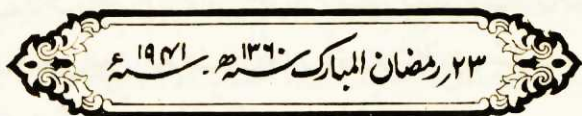 ۲۳؍رمضان المبارک ۱۳۶۰؁ھ ۔ ۱۹۴۱؁ء